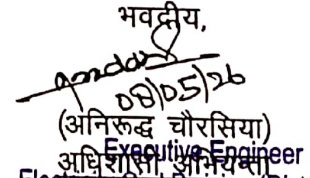 भवदीय,
08/05/26
(अनिरूद्ध चौरसिया)
अधिशासी अभियन्ता
Executive Engineer